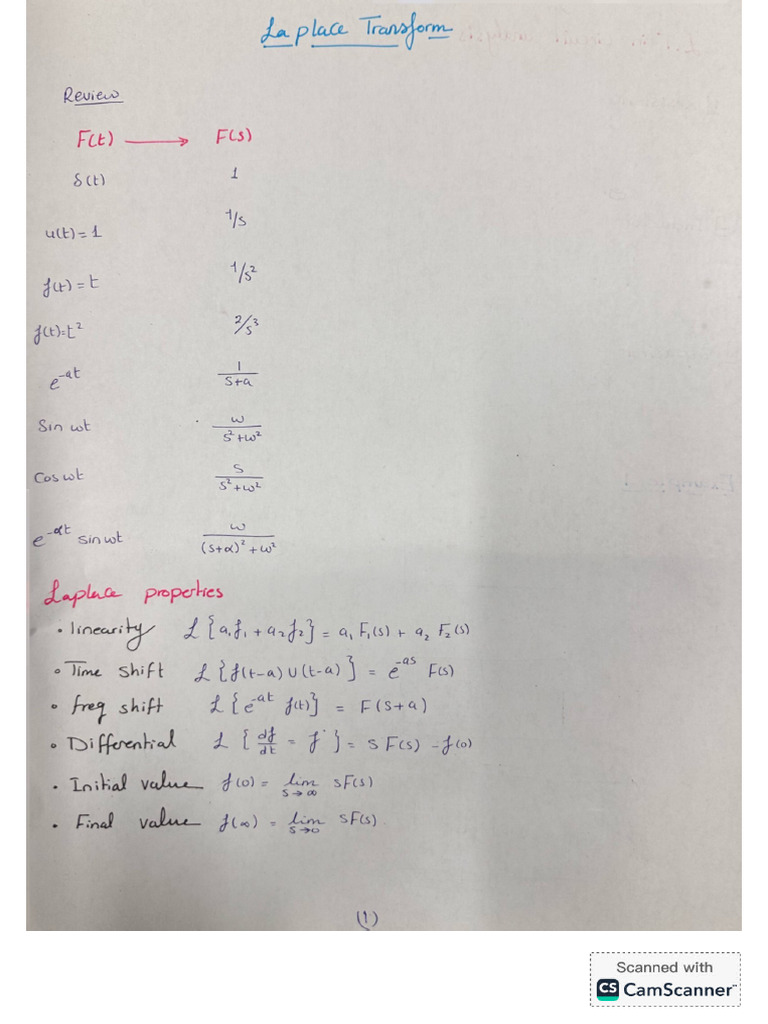 Laplace Transform
Review
F(t) ⟶ F(s)
δ(t) 1
u(t) = 1 1/s
f(t) = t 1/s²
f(t)=t² 2/s³
e^-at 1/(s+a)
Sin wt w/(s²+w²)
Cos wt s/(s²+w²)
e^-αt sin wt w/((s+α)²+w²)
Laplace properties
• linearity ℒ{a₁f₁ + a₂f₂} = a₁ F₁(s) + a₂ F₂(s)
• Time shift ℒ{f(t-a) U(t-a)} = e^-as F(s)
• freq shift ℒ{e^-at f(t)} = F(s+a)
• Differential ℒ{df/dt = f˙} = s F(s) - f(0)
• Initial value f(0) = lim s→∞ sF(s)
• Final value f(∞) = lim s→0 sF(s)
(1)
Scanned with
CS CamScanner™